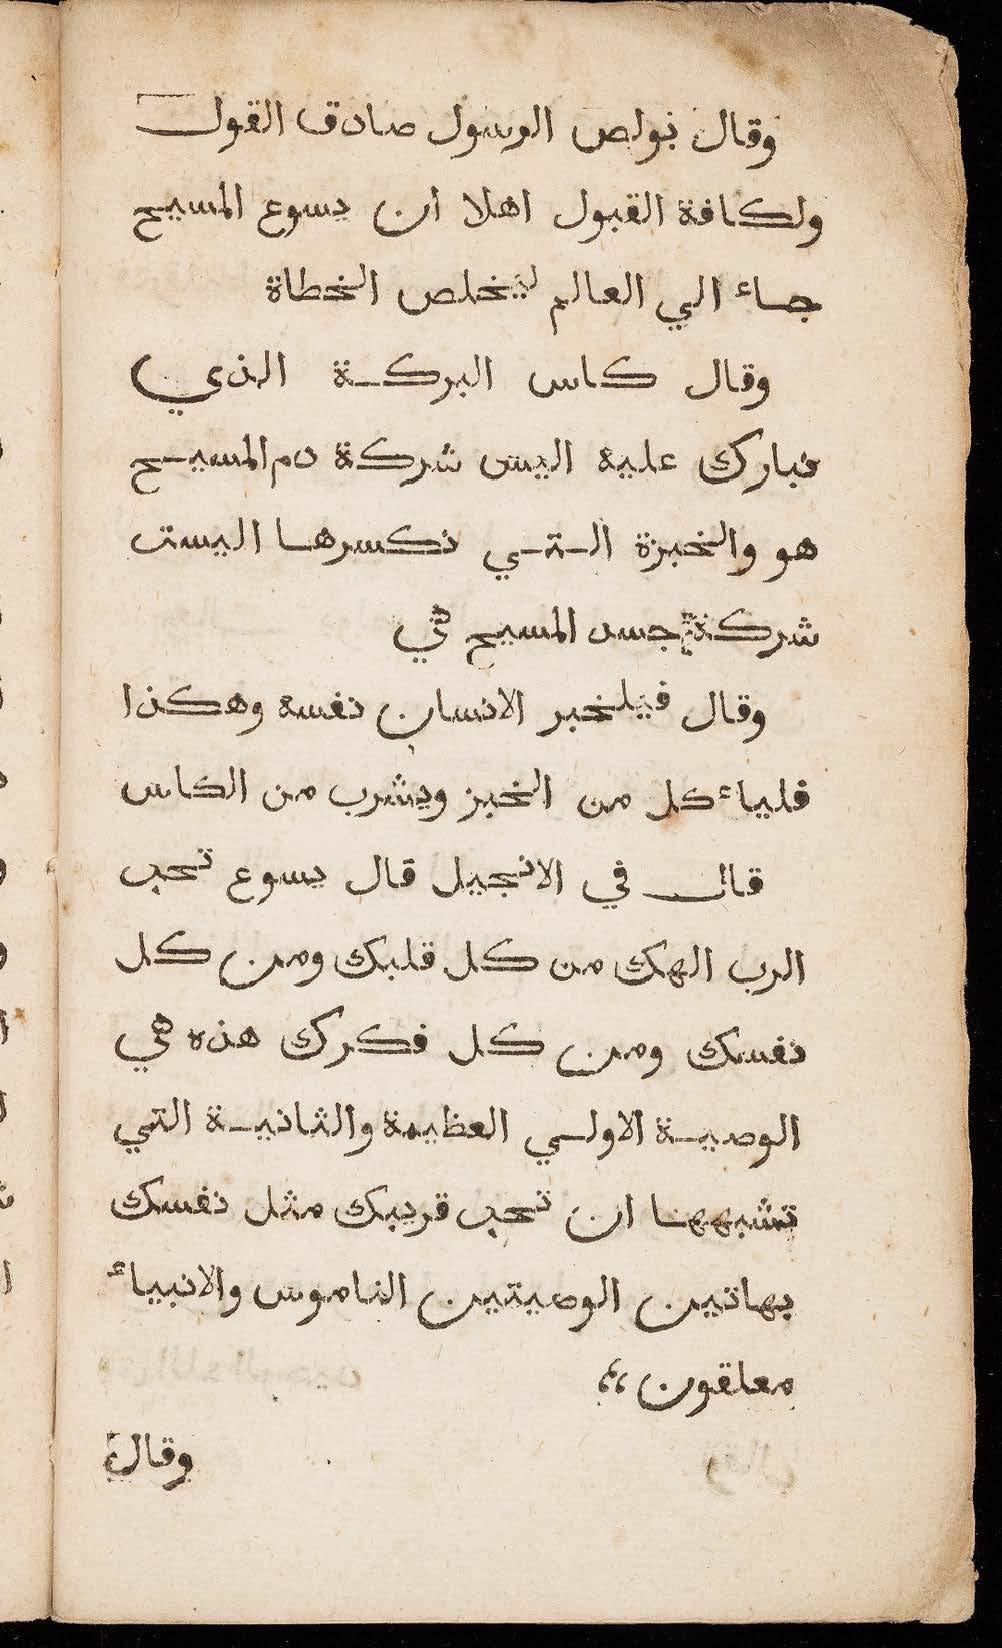 وقال بولص الرسول صادق القول
ولكافة القبول اهلا ان يسوع المسيح
جاء الي العالم ليخلص الخطاة
وقال كاس البركة الذي
نبارك عليه اليس شركة دم المسيح
هو والخبزة التي نكسرها اليست
شركة جسد المسيح هي
وقال فيلخبر الانسان نفسه وهكذا
فلياءكل من الخبز ويشرب من الكاس
قال في الانجيل قال يسوع تحب
الرب الهك من كل قلبك ومن كل
نفسك ومن كل فكرك هذه هي
الوصية الاولي العظيمة والثانية التي
تشبهها ان تحب قريبك مثل نفسك
بهاتين الوصيتين الناموس والانبياء
معلقون،،
وقال